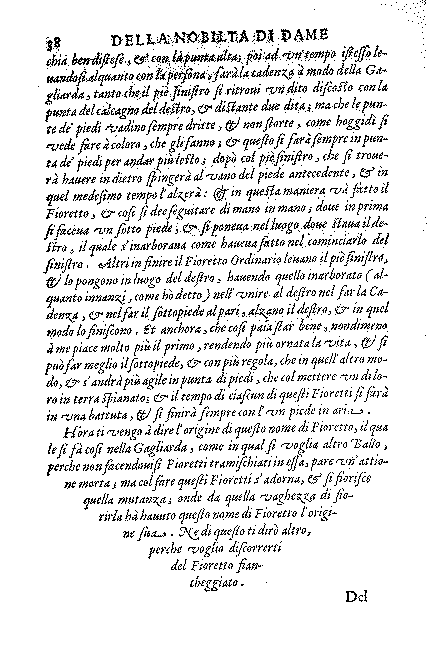 38 DELLA NOBILTA DI DAME
chia ben distese, & con la punta alta; poi ad vn'tempo istesso le-
uandosi alquanto con la persona, farà la cadenza à modo della Ga-
gliarda, tanto che il piè sinistro si ritroui vn dito discosto con la
punta del calcagno del destro, & distante due dita; ma che le pun-
te de' piedi vadino sempre dritte, & non storte, come hoggidì si
vede fare à coloro, che gli fanno; & questo si farà sempre in pun-
ta de' piedi per andar più lesto; dopò col piè sinistro, che si troue-
rà hauere in dietro spingerà al vano del piede antecedente, & in
quel medesimo tempo l'alzerà: & in questa maniera và fatto il
Fioretto, & così si dee seguitare di mano in mano; doue in prima
si faceua vn sotto piede; & si poneua nel luogo doue staua il de-
stro, il quale s'inarboraua come haueua fatto nel cominciarlo del
sinistro. Altri in finire il Fioretto Ordinario leuano il piè sinistro,
& lo pongono in luogo del destro, hauendo quello inarborato (al-
quanto innanzi, come hò detto) nell'vnire al destro nel far la Ca-
denza, & nel far il sottopiede al pari, alzano il destro, & in quel
modo lo finiscono. Et anchora, che così paia star bene, nondimeno
à me piace molto più il primo, rendendo più ornata la vita, & si
può far meglio il sottopiede, & con più regola, che in quell'altro mo-
do, & s'andrà più agile in punta di piedi, che col mettere vn di lo-
ro in terra spianato; & il tempo di ciascun di questi Fioretti si farà
in vna battuta, & si finirà sempre con l'vn piede in aria.
Hora ti vengo à dire l'origine di questo nome di Fioretto, il qua
le si fà così nella Gagliarda, come in qual si voglia altro Ballo,
perche non facendouisi Fioretti tramischiati in essa, pare vn'attio-
ne morta; ma col fare questi Fioretti s'adorna, & si fiorisce
quella mutanza; onde da quella vaghezza di fio-
rirla hà hauuto questo nome di Fioretto l'origi-
ne sua. Ne di questo ti dirò altro,
perche voglio discorrerti
del Fioretto fian-
cheggiato.
Del